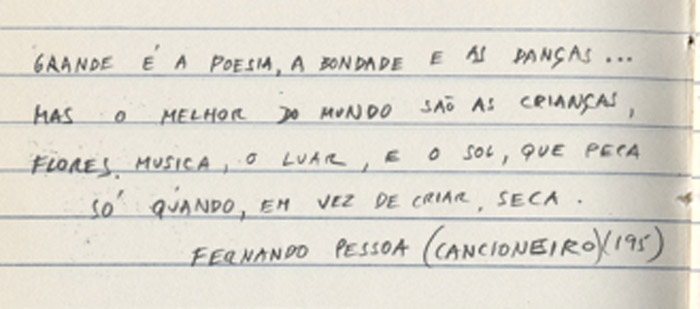 GRANDE É A POESIA, A BONDADE E AS DANÇAS...
MAS O MELHOR DO MUNDO SÃO AS CRIANÇAS,
FLORES, MUSICA, O LUAR, E O SOL, QUE PECA
SÓ QUANDO, EM VEZ DE CRIAR, SECA.
FERNANDO PESSOA (CANCIONEIRO)(195)